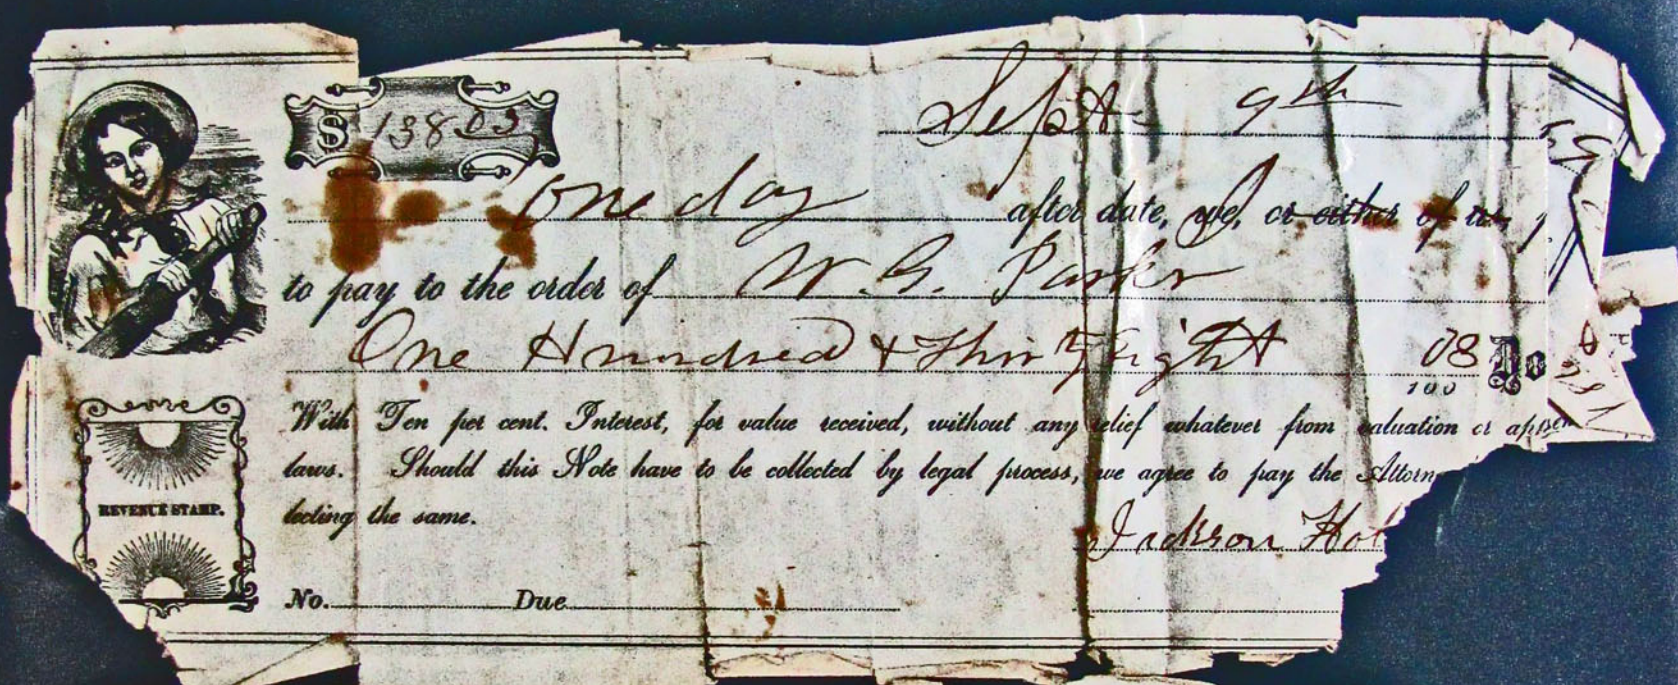 $ 138
Sept. 9th
One day after date, we, or either of us,
to pay to the order of W. G. Parker
One Hundred & Thirty Eight 08 Do
100
With Ten per cent. Interest, for value received, without any relief whatever from valuation or appr
laws. Should this Note have to be collected by legal process, we agree to pay the Attorn
lecting the same.
REVENUE STAMP.
Jackson Hol
No. Due